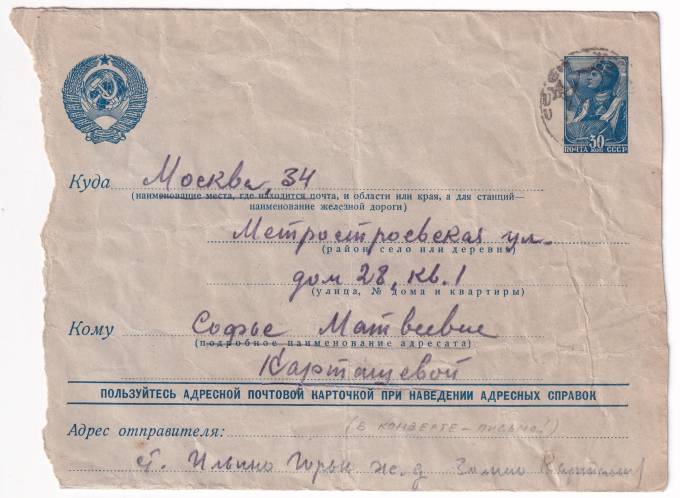 30 КОП
ПОЧТА СССР
Куда Москва, 34
(наименование места, где находится почта, и области или края, а для станций—
наименование железной дороги)
Метростроевская ул.
(район село или деревня)
дом 28, кв. 1
(улица, № дома и квартиры)
Кому Софье Матвеевне
(подробное наименование адресата)
Карташевой
ПОЛЬЗУЙТЕСЬ АДРЕСНОЙ ПОЧТОВОЙ КАРТОЧКОЙ ПРИ НАВЕДЕНИИ АДРЕСНЫХ СПРАВОК
Адрес отправителя: (в конверте - письмо!)
ст. Ильино Горьк ж.д